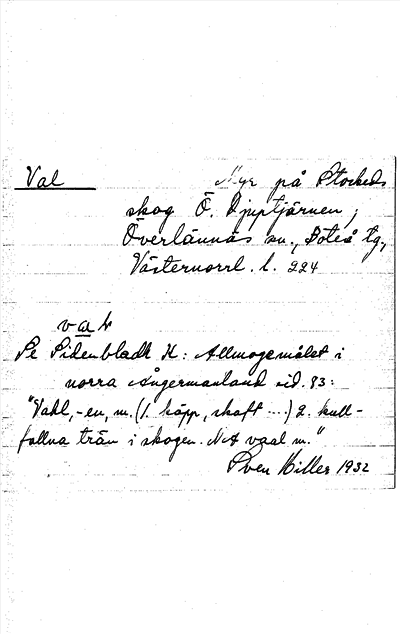 Val Myr på Stockeds
skog Ö. Djuptjärnen;
Överlännäs sn., Boteå tg,
Västernorrl. l. 224
val
Se Sidenbladh K: Allmogemålet i
norra Ångermanland sid. 83:
"Vahl, -en, m. (1. käpp, skaft ...) 2. kull-
fallna trän i skogen. NA vaal m."
Sven Hiller 1932